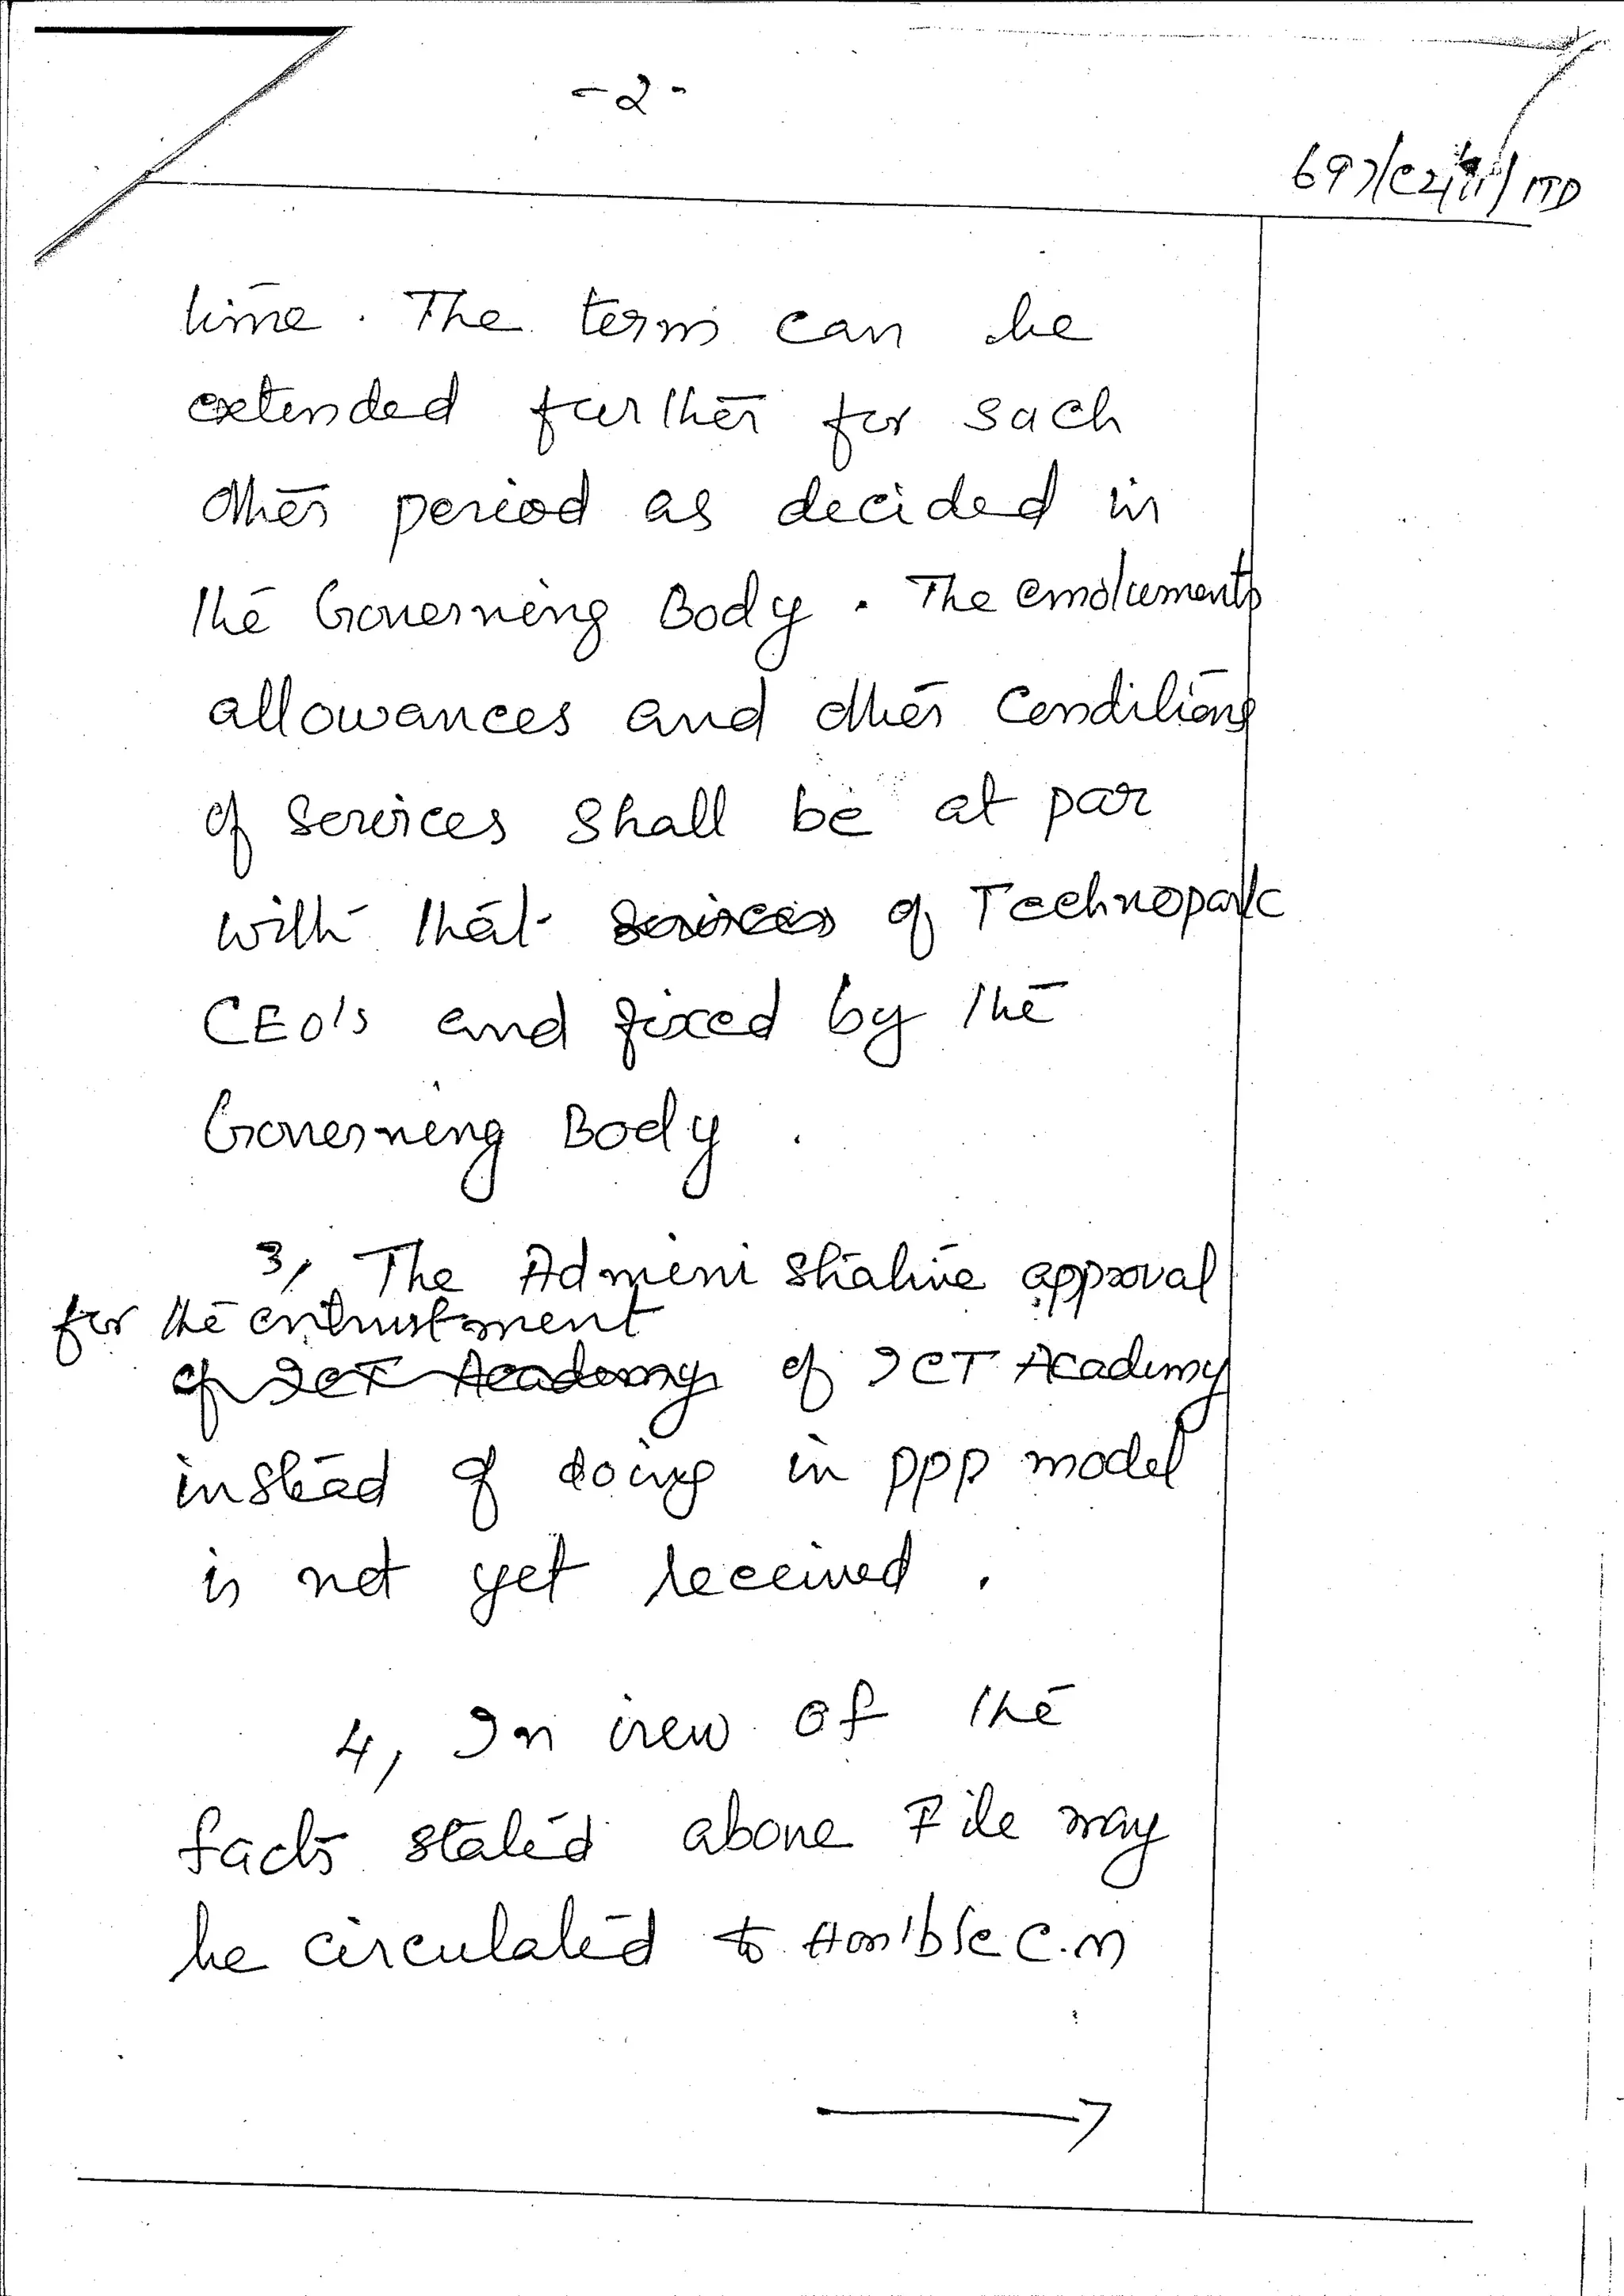 -2-
697/C2/11/ITD
time. The term can be
extended further for such
other period as decided in
the Governing Body. The emoluments
allowances and other conditions
of services shall be at par
with that services of Technopark
CEO's and fixed by the
Governing Body.
3, The Administrative approval
for the entrustment
of ICT Academy of ICT Academy
instead of doing in ppp model
is not yet received.
4, In view of the
facts stated above File may
be circulated to Hon'ble C.M